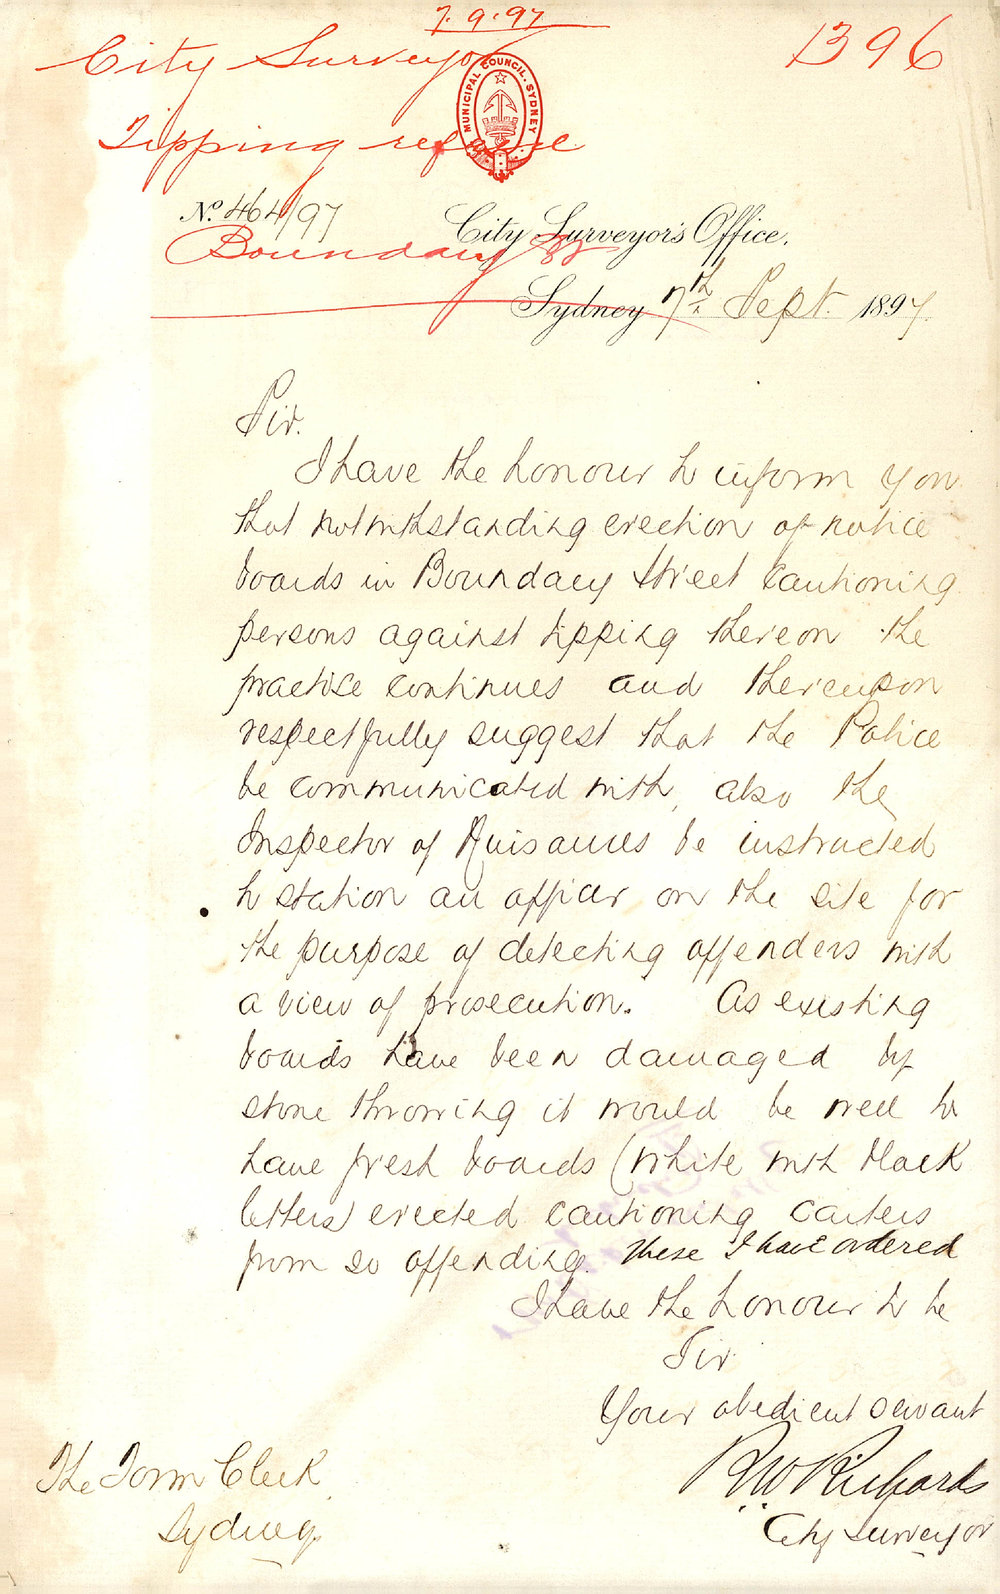 7.9.97
1396
City Surveyor
MUNICIPAL COUNCIL. SYDNEY
Tipping refuse
No. 464/97
City Surveyor's Office,
Boundary St
Sydney 7th Sept. 1897
Sir.
I have the honour to inform you
that notwithstanding erection of notice
boards in Boundary Street cautioning
persons against tipping thereon the
practise continues and thereupon
respectfully suggest that the Police
be communicated with, also the
Inspector of Nuisances be instructed
to station an officer on the site for
the purpose of detecting offenders with
a view of prosecution. As existing
boards have been damaged by
stone throwing it would be well to
have fresh boards (white with black
letters) erected cautioning carters
from so offending. These I have ordered
I have the honour to be
Sir
Your obedient servant
R W Richards
City Surveyor
The Town Clerk
Sydney.